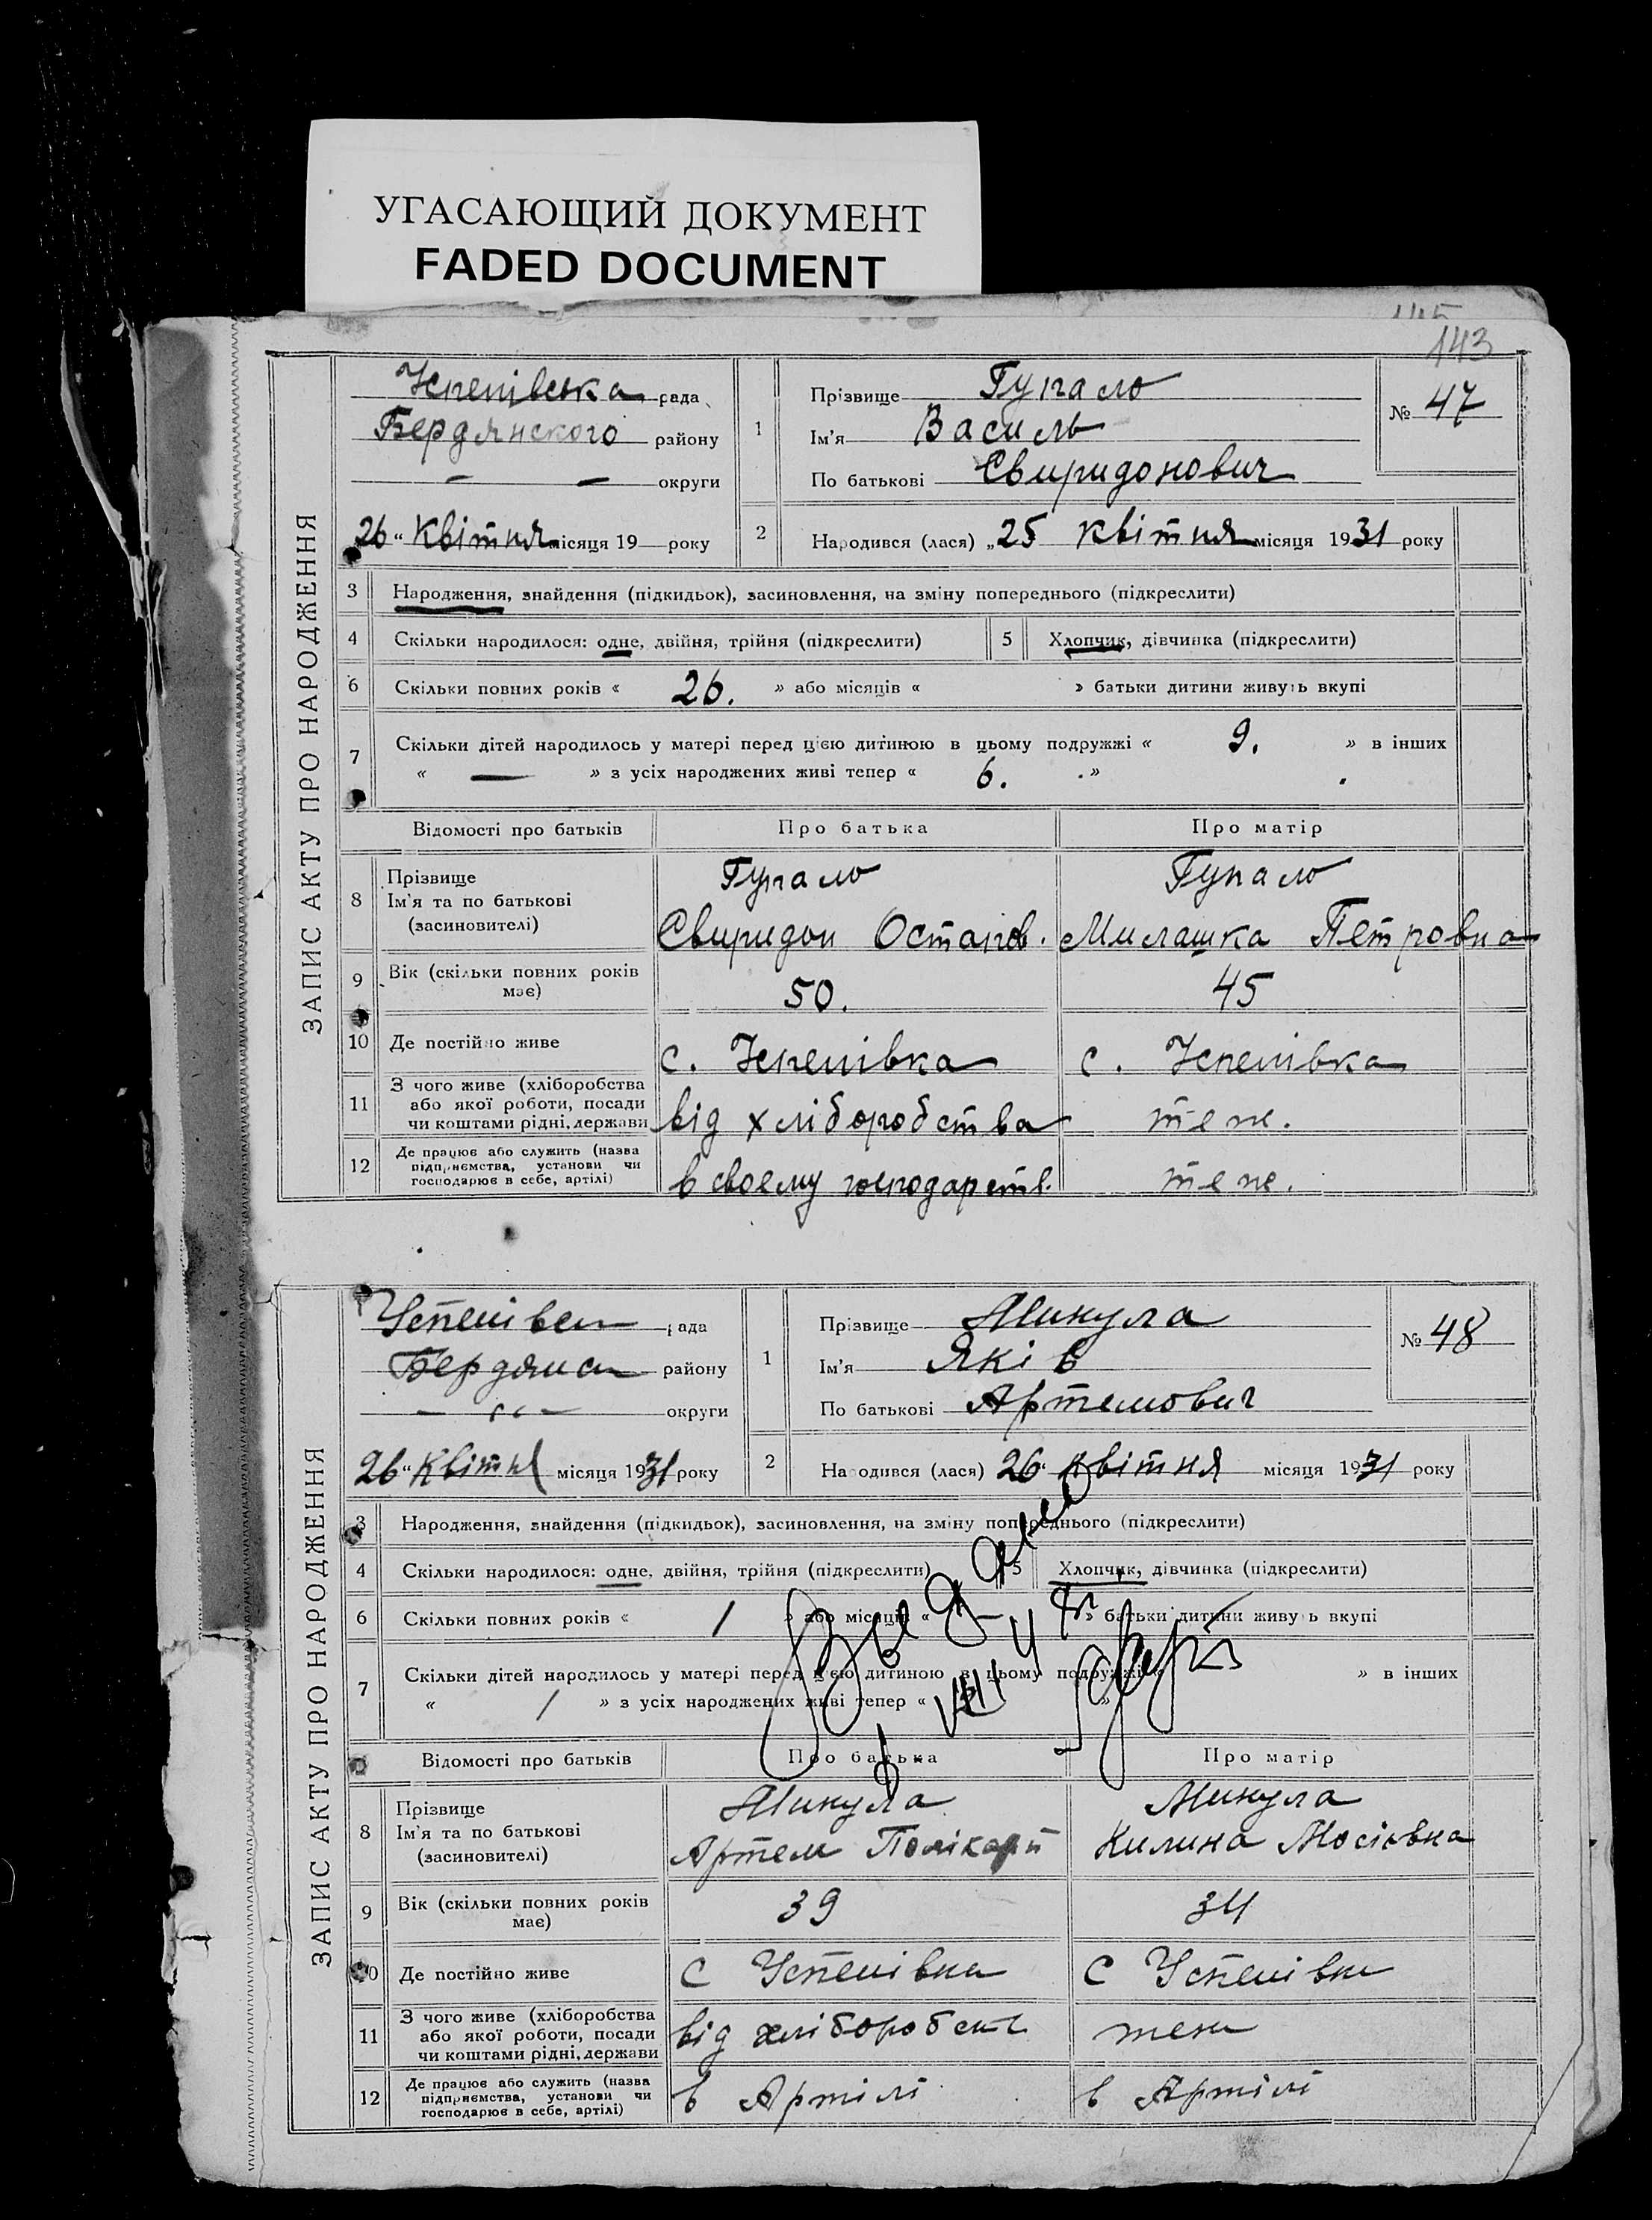 УГАСАЮЩИЙ ДОКУМЕНТ
FADED DOCUMENT
143
ЗАПИС АКТУ ПРО НАРОДЖЕННЯ
Успенівська рада
Бердянского району
— — округи
26 " Квітня місяця 19 року
1
Прізвище Гупало
Ім'я Василь
По батькові Свиридонович
№ 47
2
Народився (лася) „25 Квітня місяця 1931 року
3 Народження, знайдення (підкидьок), засиновлення, на зміну попереднього (підкреслити)
4 Скільки народилося: одне, двійня, трійня (підкреслити) 5 Хлопчик, дівчинка (підкреслити)
6 Скільки повних років « 26. » або місяців « » батьки дитини живуть вкупі
7 Скільки дітей народилось у матері перед цією дитиною в цьому подружжі « 9. » в інших
« — » з усіх народжених живі тепер « 6. »
Відомості про батьків Про батька Про матір
8 Прізвище Ім'я та по батькові (засиновителі)
Гупало Гупало
Свиридон Остапов. Милашка Петровна
9 Вік (скільки повних років має) 50. 45
10 Де постійно живе с. Успенівка с. Успенівка
11 З чого живе (хліборобства або якої роботи, посади чи коштами рідні, держави
від хліборобства теж.
12 Де працює або служить (назва підприємства, установи чи господарює в себе, артілі)
в своему господарств. теж.
ЗАПИС АКТУ ПРО НАРОДЖЕННЯ
Успенівсь рада
Бердянсь району
округи
26 " Квітня місяця 1931 року
1
Прізвище Микула
Ім'я Яків
По батькові Артемович
№ 48
2
Народився (лася) 26 " Квітня місяця 1931 року
3 Народження, знайдення (підкидьок), засиновлення, на зміну попереднього (підкреслити)
4 Скільки народилося: одне, двійня, трійня (підкреслити) 5 Хлопчик, дівчинка (підкреслити)
6 Скільки повних років « / » або місяців « » батьки дитини живуть вкупі
7 Скільки дітей народилось у матері перед цією дитиною в цьому подружжі « » в інших
« / » з усіх народжених живі тепер « »
Відомості про батьків Про батька Про матір
8 Прізвище Ім'я та по батькові (засиновителі)
Микула Микула
Артем Полікарп Килина Мосіевна
9 Вік (скільки повних років має) 39 34
10 Де постійно живе с Успенівка с Успенівка
11 З чого живе (хліборобства або якої роботи, посади чи коштами рідні, держави
від хліборобст теж
12 Де працює або служить (назва підприємства, установи чи господарює в себе, артілі)
в Артілі в Артілі